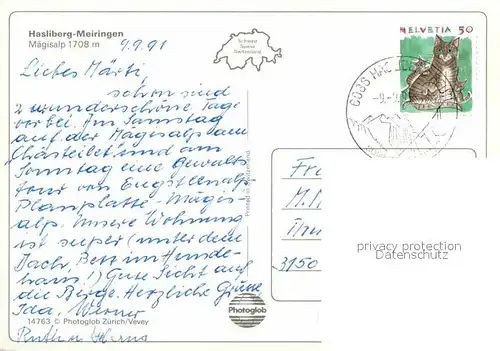 Hasliberg-Meiringen
Mägisalp 1708 m
9.9.91
Schweiz
Suisse
Switzerland
HELVETIA 50
6085 HASLIBERG
Liebes Märti,
schon sind
2 wunderschöne Tage
vorbei. Im Samstag
auf der Mägisalp am
Chästeilet und am
Sonntag eine Gewalts
tour von Engstlenalp
Planplatte - Mägis-
alp. Unsere Wohnung
ist super (unter dem
Dach, Bett im Hunde-
haus!) Gute Sicht auf
die Berge. Herzliche Grüsse
Ida, Werner
Ruth
Printed in Switzerland
Photoglob
14763 © Photoglob Zürich/Vevey
M.
3150
privacy protection
Datenschutz